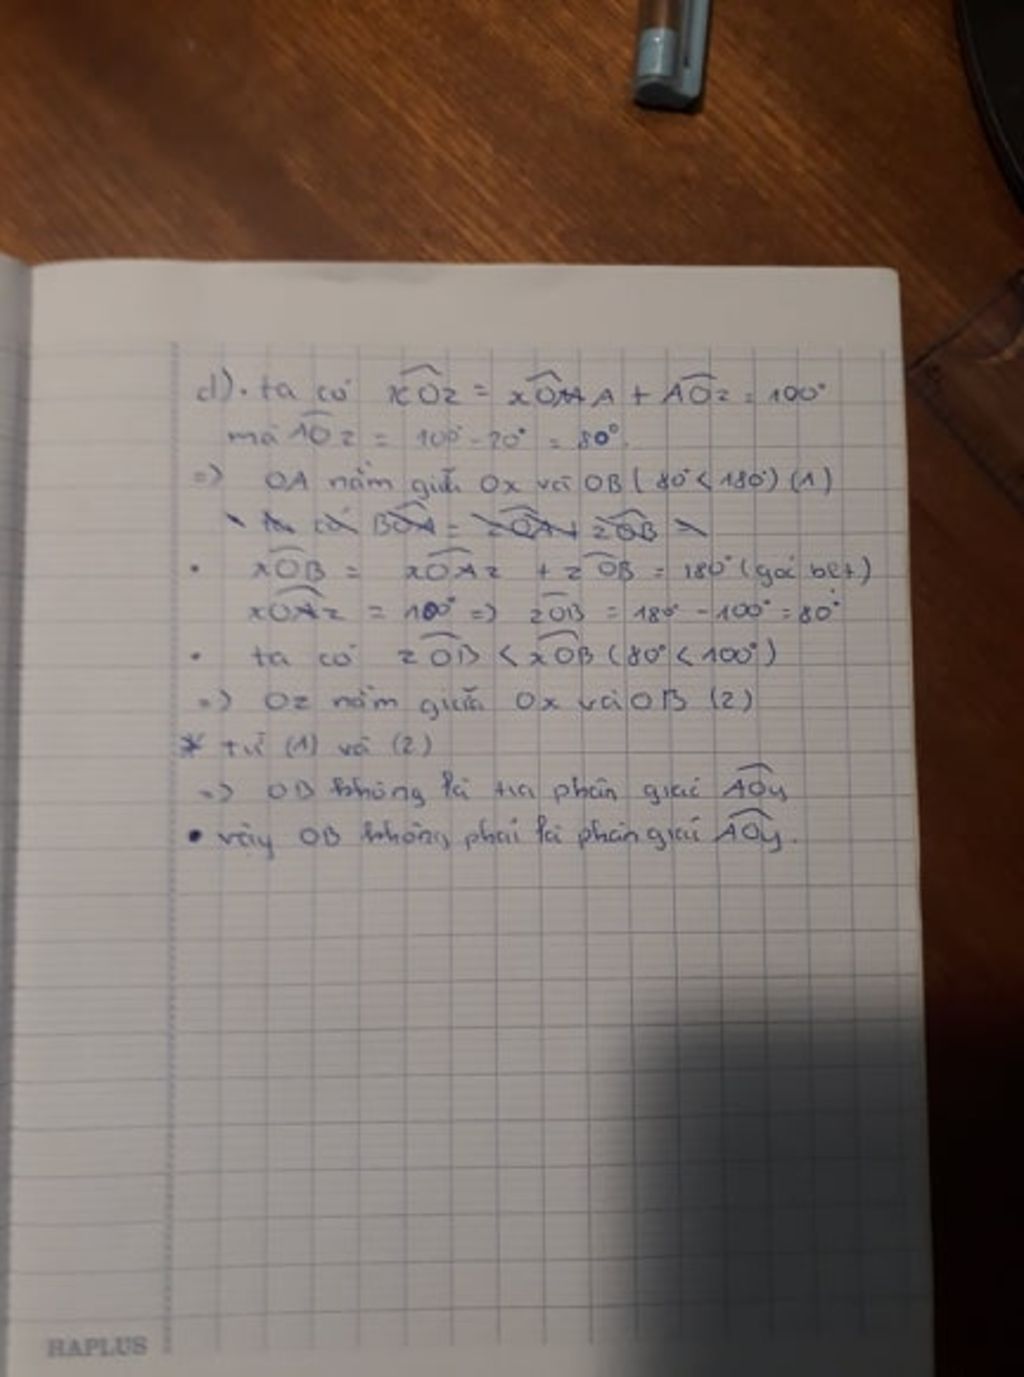 d). ta có xOz = xOA + AOz = 100°
mà AOz = 100° - 20° = 80°.
=> OA nằm giữa Ox và OB (80° < 180°) (1)
ta có BOA = zOA + zOB
• xOB = xOAz + zOB = 180° (góc bẹt)
xOAz = 100° => zOB = 180° - 100° = 80°
• ta có zOB < xOB (80° < 100°)
=> Oz nằm giữa Ox và OB (2)
* từ (1) và (2)
=> OB không là tia phân giác AOy
• vậy OB không phải là phân giác AOy.
HAPLUS